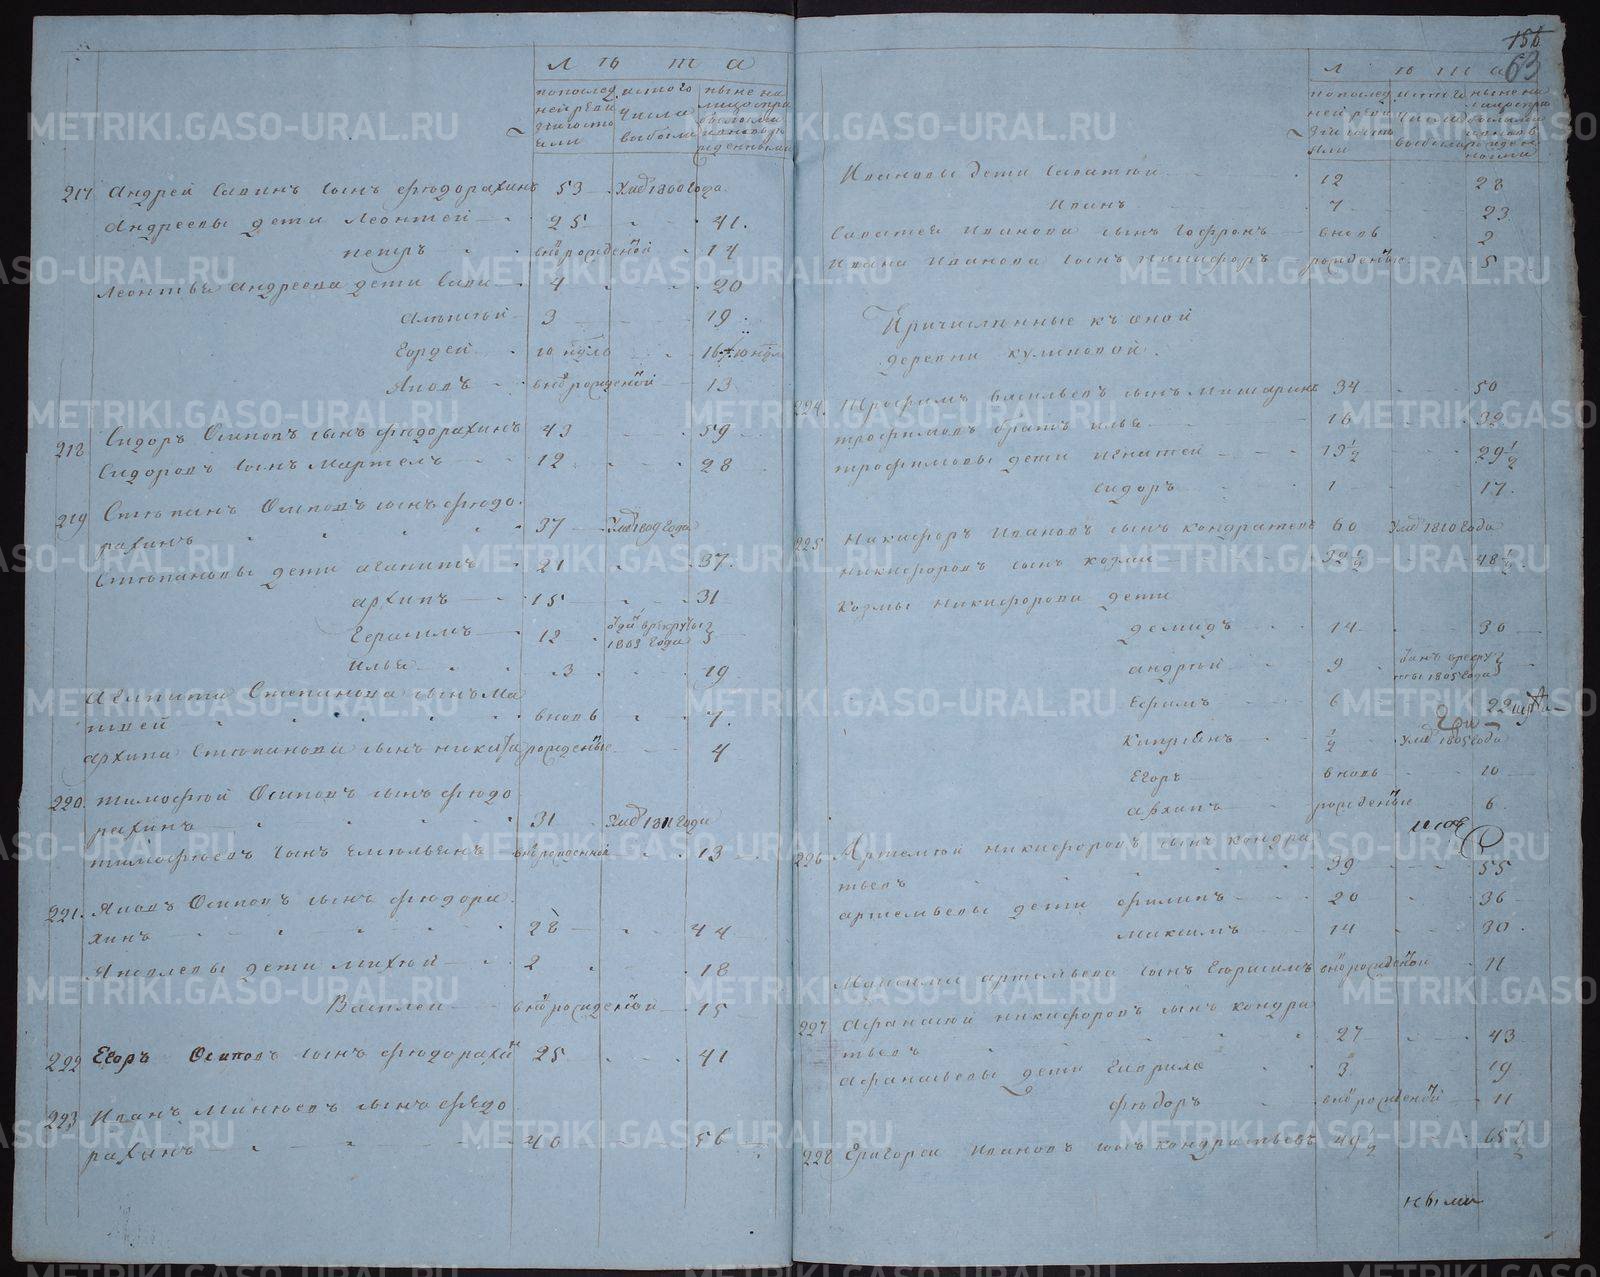 лѣта
по последней ревизии состояли
из того числа выбыли
ныне на лицо с прибылыми и новорожденными
217 Андрей Савинъ сынъ Федорахинъ 53 умре 1800 года
Андреевы дети Леонтей 25 41.
Петръ вновь рожденой 14
Леонтья Андреева дети Сави 4 20
Алексей 3 19
Гордей 16
Яковъ вновь рожденой 13
218 Сидоръ Осиповъ сынъ Федорахинъ 43 59
Сидоровъ сынъ Мартемъ 12 28
219 Степанъ Осиповъ сынъ Федо
рахинъ 37 умре 1809 года
Степановы дети Агапитъ 21 37.
Архипъ 15 31
Герасимъ 12 отданъ в рекруты 1803 года
Илья 3 19
Агапита Степанова сынъ Ма
твей вновь 7
Архипа Степанова сынъ Никита рожденые 4
220. Тимофей Осиповъ сынъ Федо
рахинъ 31 умре 1811 года
Тимофеевъ сынъ Емельянъ вновь рожденной 13
221. Яковъ Осиповъ сынъ Федора
хинъ 28 44
Яковлевы дети Михей 2 18
Василей вновь рожденой 15
222 Егоръ Осиповъ сынъ Федорахи 25 41
223 Иванъ Минеевъ сынъ Федо
рахинъ 40 56
156
63
лѣта
по последней ревизии состояли
из того числа выбыло
ныне на лицо с прибылыми и новорожденными
Ивановы дети Саватей 12 28
Иванъ 7 23
Саватея Иванова сынъ Софронъ вновь 2
Ивана Иванова сынъ Никифоръ рожденые 5
Причисленные къ оной
деревни Куликовой.
224. Трофимъ Васильевъ сынъ Мишаринъ 34 50
Трофимовъ братъ Илья 16 32
Трофимовы дети Игнатей 13½ 29½
Сидоръ 1 17.
225 Никифоръ Ивановъ сынъ Кондратьевъ 60 умре 1810 года
Никифоровъ сынъ Козма 32½ 48½
Козмы Никифорова дети
Демидъ 14 30
Андрей 9 отданъ в рекруты 1805 года
Ефимъ 6 22
Киприянъ ½ умре 1805 года
Егоръ вновь 10
Архипъ рожденые 6.
226 Артемей Никифоровъ сынъ Кондра
тьевъ 39 55
Артемьевы дети Филипъ 20 36
Максимъ 14 30.
Максима Артемьева сынъ Герасимъ вновь рожденой 11
227 Афанасей Никифоровъ сынъ Кондра
тьевъ 27 43
Афанасьевы дети Гаврила 3 19
Федоръ вновь рожденой 11
228 Григорей Ивановъ сынъ Кондратьевъ 49½ 65½
METRIKI.GASO-URAL.RU